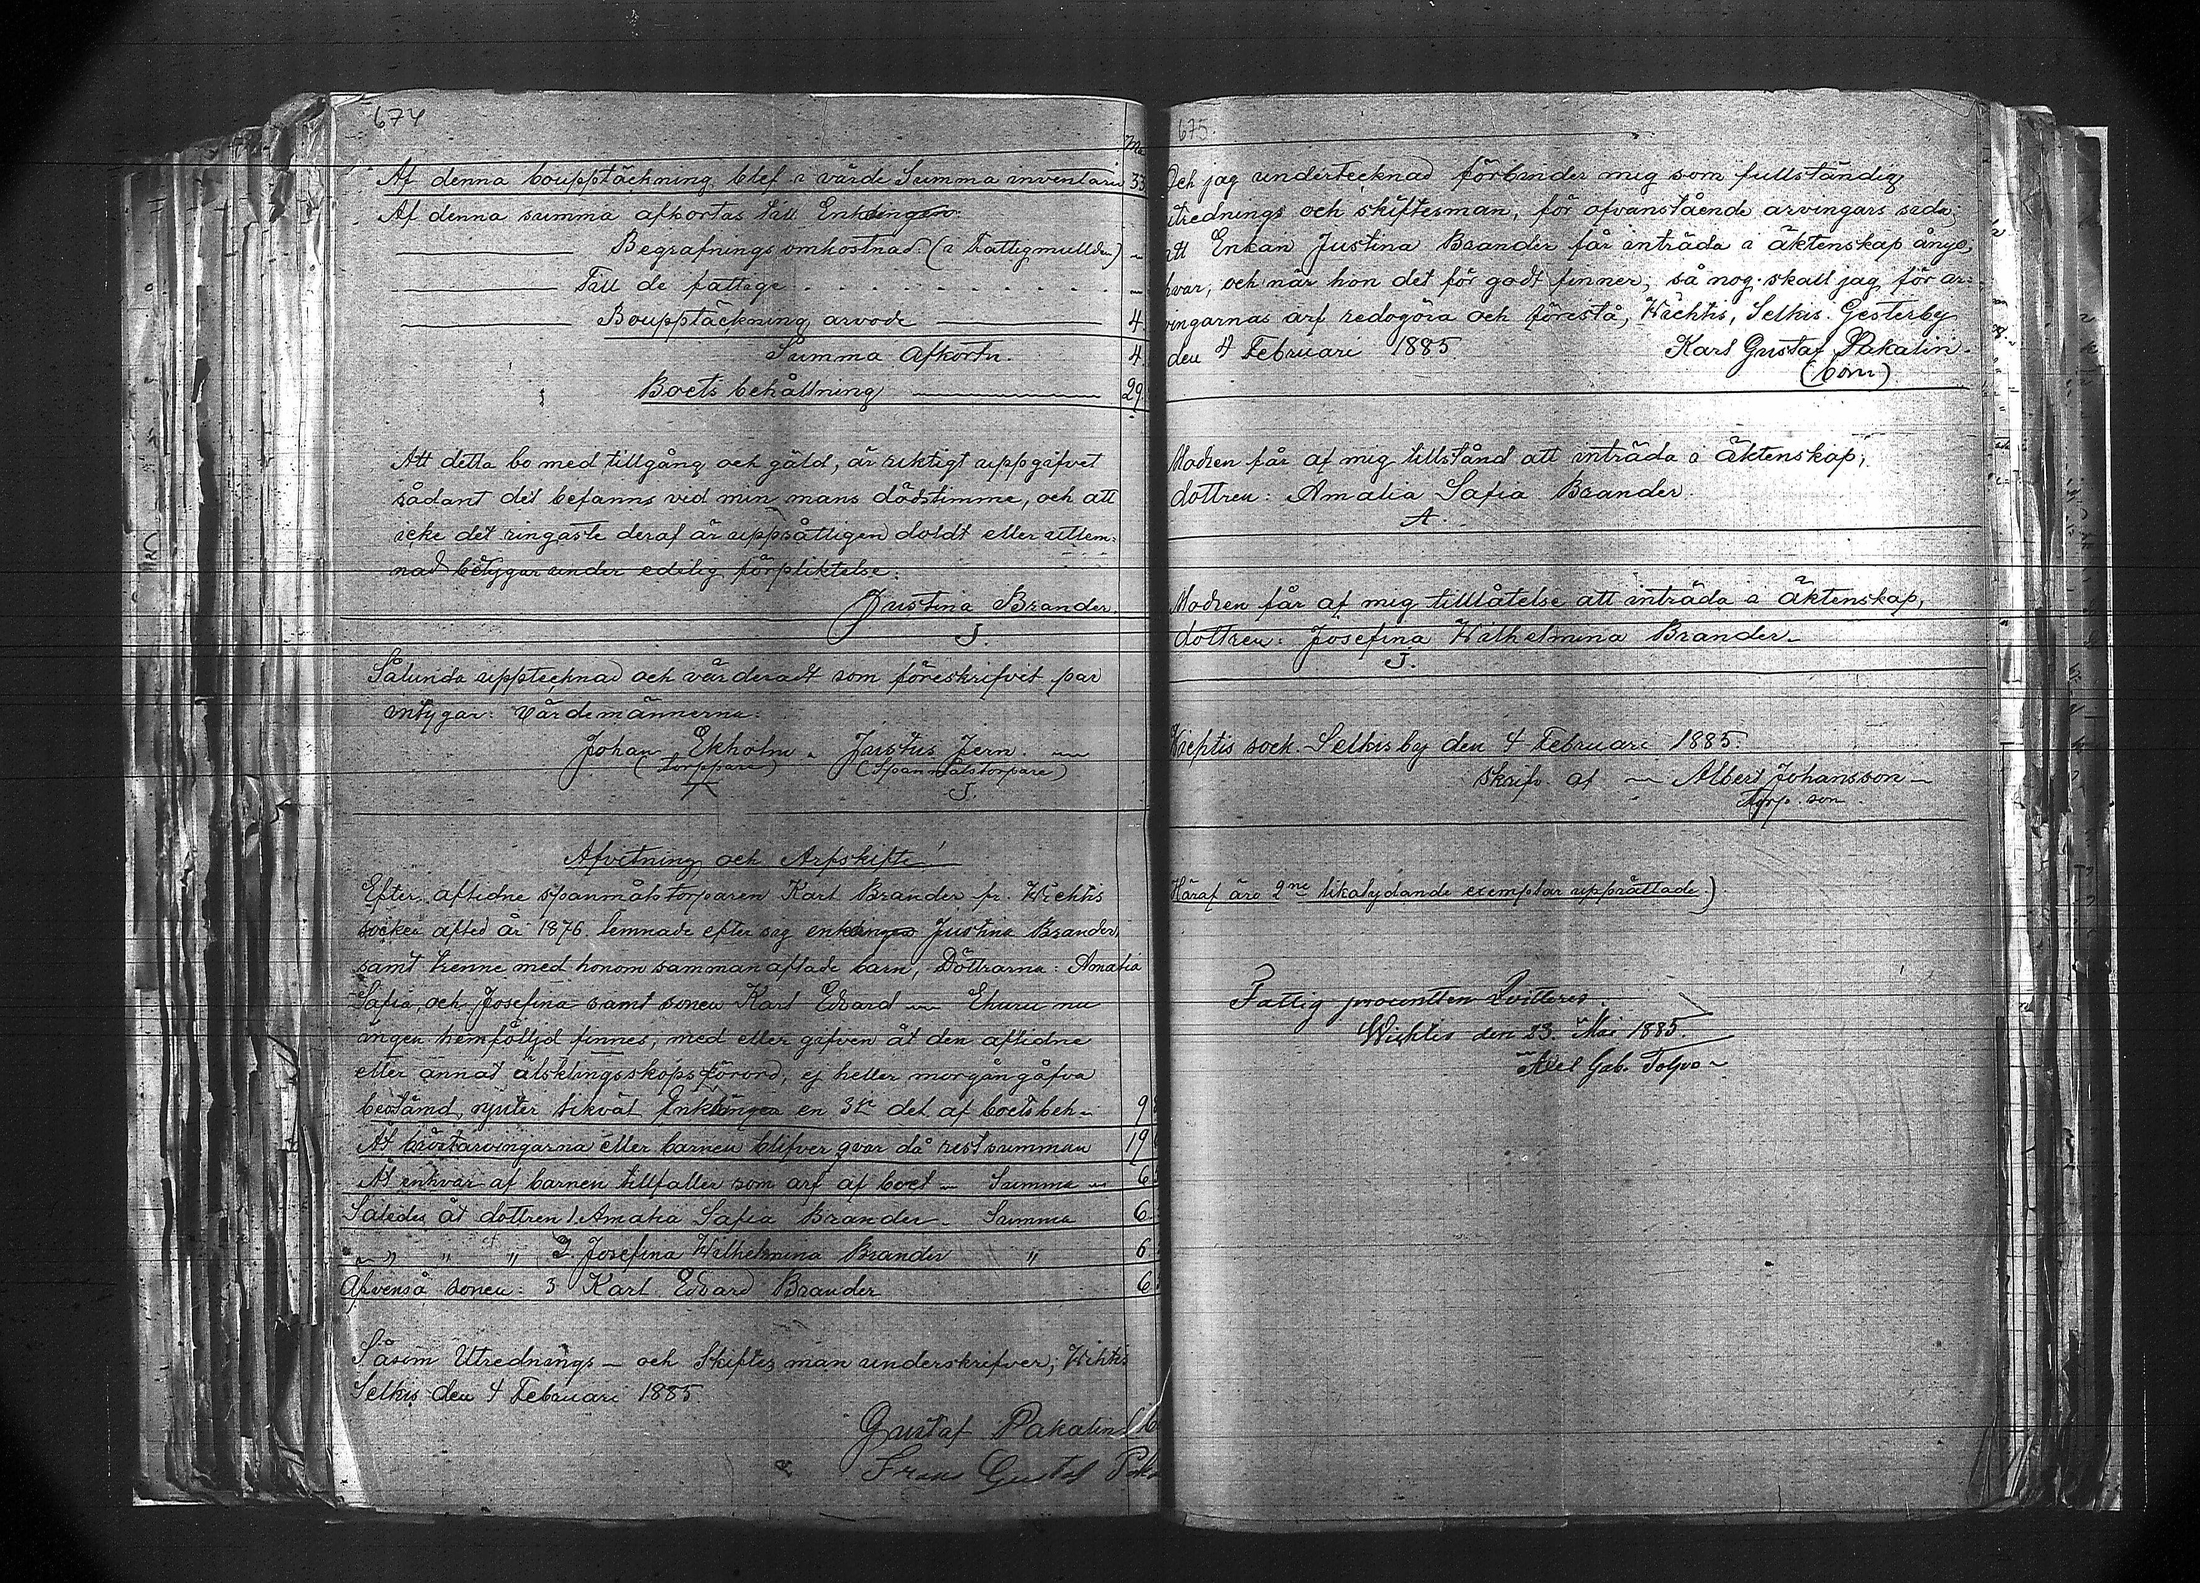 674
Af denna bouppteckning blef i värde Summa inventarii 33
Af denna summa afkortas till Enklingen:
Begrafnings omkostnad. (i Fattigmullden) ~
Till de fattige . . . . . . . . . . ~
Bouppteckning arvode 4
Summa Afkortn. 4
Boets behållning 29
Att detta bo med tillgång och gäld, är riktigt uppgifvet
sådant det befanns vid min mans dödstimme, och att
icke det ringaste deraf är uppsåtligen doldt eller utlem-
nad betygar under edelig förpliktelse:
Justina Brander.
J.
Sålunda upptecknad och värderadt som föreskrifvit par
intygar: Värdemännerna:
Johan Ekholm. Justus Jern. ~
(torppare) (Spanmålstorpare)
J.
Afvitning och Arfskifte!
Efter aflidne spanmålstorparen Karl Brander fr. Wichtis
socken afled år 1876. lemnade efter sig enklingen Justina Brander,
samt trenne med honom sammanaflade barn, Döttrarna: Amalia
Safia, och Josefina samt sonen Karl Edvard ~ Ehuru nu
ingen hemföljd finnes, med eller gifven åt den aflidne
eller annat älsklingsskaps förord, ej heller morgångåfva
bestämd, njuter likväl Enklingen en 3del af boets beh~ 9
Åt bröstarvingarna eller barnen blifver qvar då restsumman 19
Åt enhvar af barnen tillfaller som arf af boet ~ Summa ~ 6
Således åt dottren 1. Amalia Safia Brander. Summa 6
~ " " " 2 Josefina Wilhelmina Brander " 6
Äfvenså sonen: 3 Karl Edvard Brander 6
Såsom Utrednings- och Skiftesman underskrifver; Wihtis
Selkis den 4 Februari 1885.
Gustaf Pakalin
Frans Gustaf
675.
Och jag undertecknad förbinder mig som fullständig
utrednings och skiftesman, för ofvanstående arvingars sida,
att Enkan Justina Brander får inträda i äktenskap ånyo,
hvar, och när hon det för godt finner, så nog skall jag för ar-
vingarnas arf redogöra och förestå, Wichtis, Selkis. Gesterby
den 4 Februari 1885 Karl Gustaf Pakalin.
Modren får af mig tillstånd att inträda i äktenskap,
dottren: Amalia Safia Brander.
A.
Modren får af mig tillåtelse att inträda i äktenskap,
dottren: Josefina Wilhelmina Brander.
J.
Wichtis sock. Selkis by den 4 Februari 1885.
skrifv. af ~ Albert Johansson ~
Torp. son.
Häraf äro 2ne likalydande exemplar upprättade.)
Fattig procentten Qvitteres.
Wichtis den 23. Mai 1885.
Axel Gab.